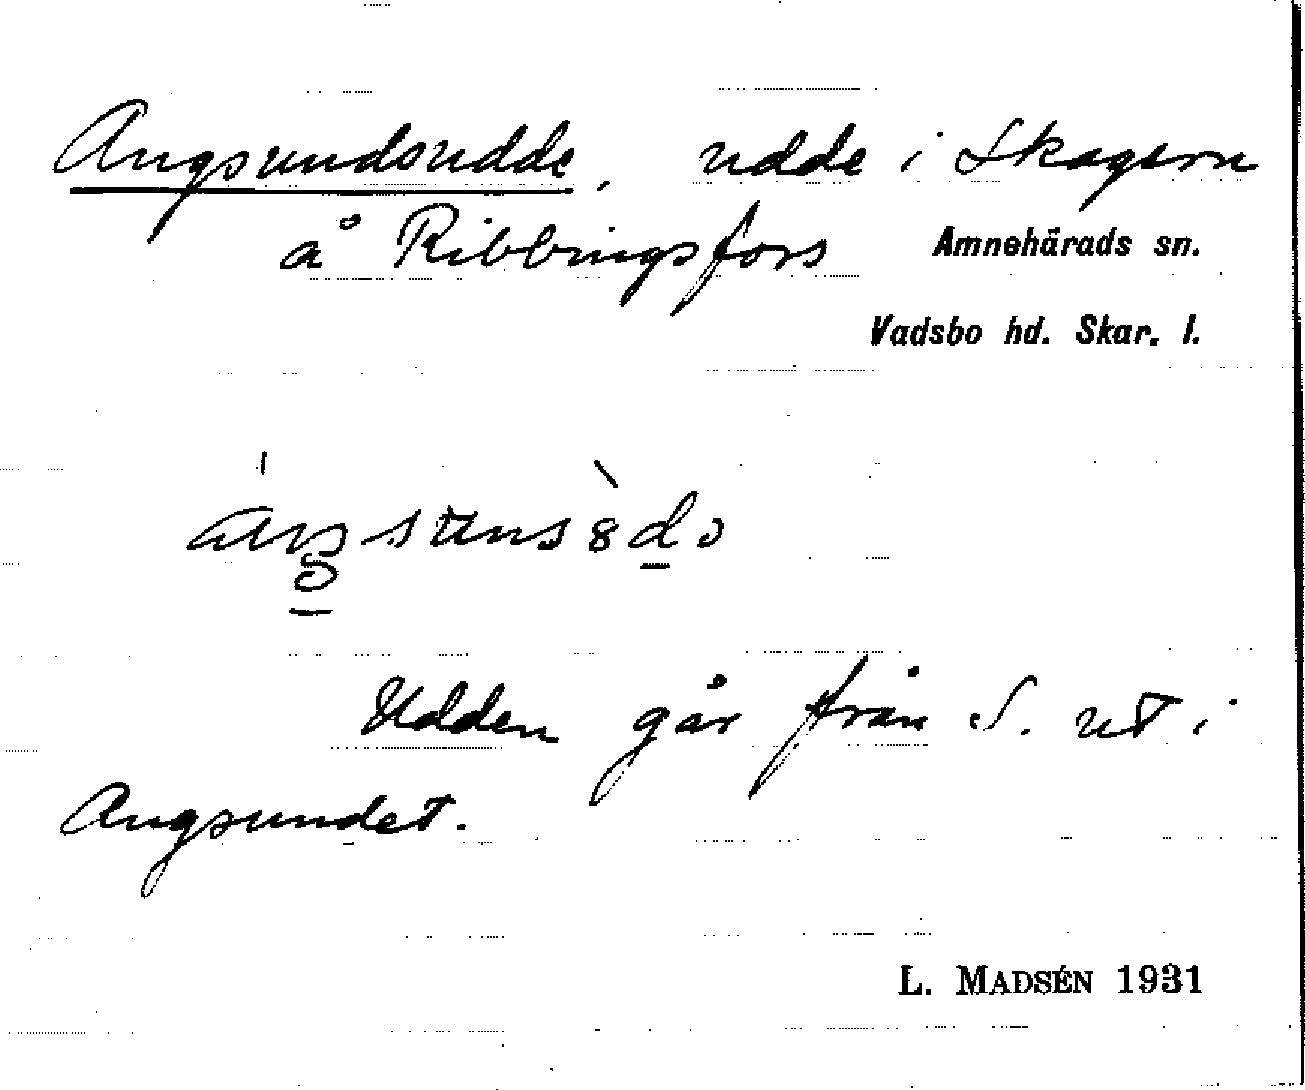 Angsundsudde, udde i Skagern
å Ribbingsfors
Amnehärads sn.
Vadsbo hd. Skar. l.
Udden går från S. ut i
Angsundet.
L. MADSÉN 1931